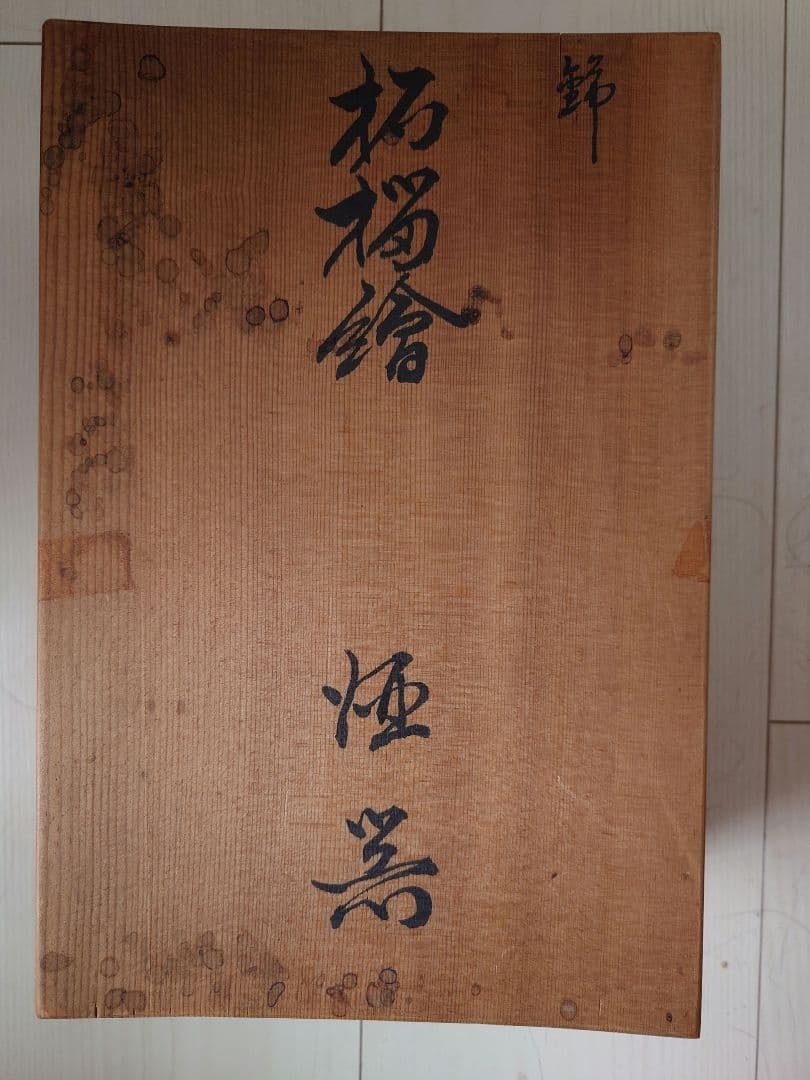 錦
柘榴繪 煙器